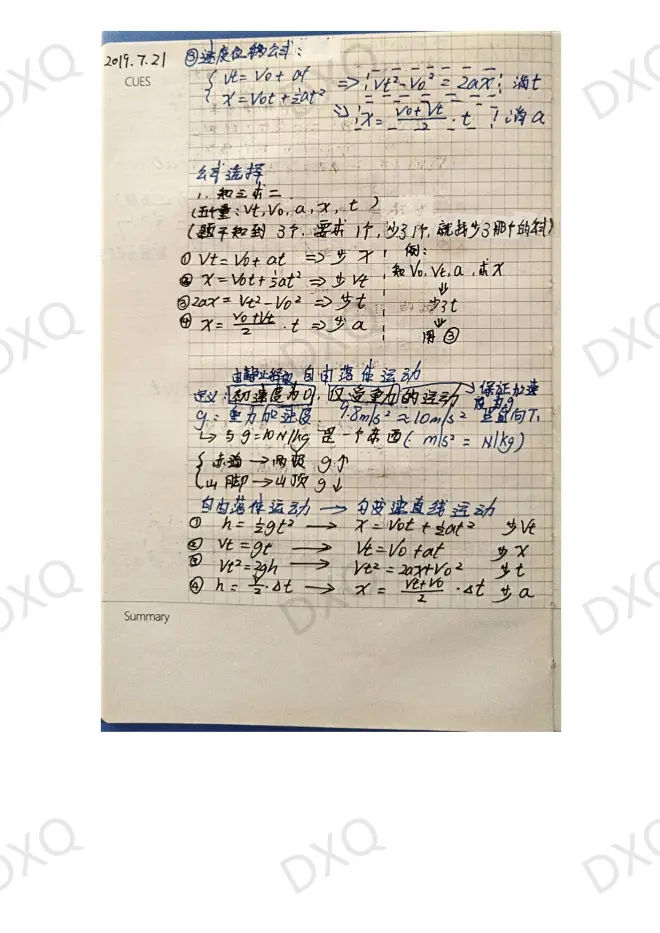 2019.7.21
CUES
③速度位移公式:
{ Vt = V0 + at => Vt² - V0² = 2ax 消t
x = V0t + ½at² => x = (V0+Vt)/2 · t 消a
公式选择
1. 知三求二
(五个量: Vt, V0, a, x, t)
(题干知到3个, 要求1个, 少了1个, 就找少了那个的公式)
① Vt = V0 + at => 少x
② x = V0t + ½at² => 少Vt
③ 2ax = Vt² - V0² => 少t
④ x = (V0+Vt)/2 · t => 少a
例:
知V0, Vt, a, 求x
⇓
少了t
⇓
用③
由静止释放 自由落体运动
定义: 初速度为0, 仅受重力的运动 → 保证加速度为g
竖直向下
g: 重力加速度 9.8m/s² ≈ 10m/s²
↳ 与g=10N/kg 是一个东西 (m/s² = N/kg)
{ 赤道 → 两极 g↑
山脚 → 山顶 g↓
自由落体运动 → 匀变速直线运动
① h = ½gt² → x = V0t + ½at² 少Vt
② Vt = gt → Vt = V0 + at 少x
③ Vt² = 2gh → Vt² = 2ax + V0² 少t
④ h = V/2 · Δt → x = (Vt+V0)/2 · Δt 少a
Summary
DXQ